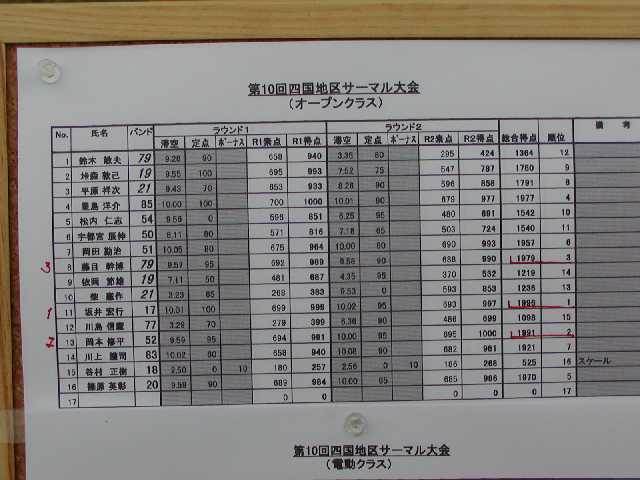 第10回四国地区サーマル大会
(オープンクラス)
No. 氏名 バンド ラウンド1 ラウンド2 総合得点 順位 備考
滞空 定点 ボーナス R1素点 R1得点 滞空 定点 ボーナス R2素点 R2得点
1 鈴木 敏夫 79 9.28 90 658 940 3.35 80 295 424 1364 12
2 19 9.55 100 695 993 7.52 75 547 787 1780 9
3 平原 祥次 21 9.43 70 653 933 8.26 90 596 858 1791 8
4 洋介 85 10.00 100 700 1000 10.01 90 679 977 1977 4
5 松内 仁志 54 9.56 0 851 6.25 95 480 691 1542 10
6 宇都宮 辰伸 50 8.11 80 571 816 7.18 65 503 724 1540 11
7 岡田 勘治 51 10.05 675 964 10.00 690 993 1957 6
3 8 藤目 幹博 79 9.57 95 692 989 688 990 1979 3
9 19 7.11 50 687 4.35 95 370 532 1219 14
10 21 3.23 65 268 383 9.53 853 1236 13
1 11 坂井 宏行 17 10.01 100 699 10.02 95 693 997 1
12 77 3.29 70 279 399 90 486 699 1098 15
2 13 岡本 修平 52 9.59 95 694 991 10.00 95 695 1000 1991 2
14 川上 83 10.02 658 940 10.08 682 981 1921 7
15 谷村 正樹 18 2.50 0 10 180 257 2.56 0 10 186 268 525 16 スケール
16 篠原 英彰 20 9.59 90 689 984 10.00 685 986 1970 5
17 0 0 0 0 0 17
第10回四国地区サーマル大会
(電動クラス)